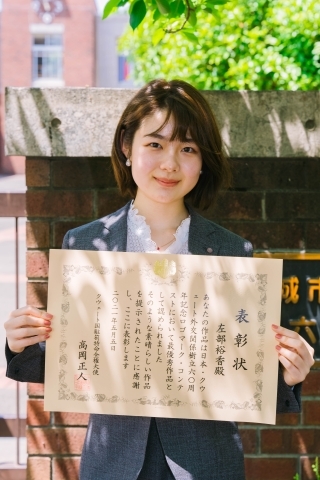 表彰状
左部裕香殿
あなたの作品は日本・クウ
ェート外交関係樹立六〇周
年記念ロゴマーク・コンテ
ストにおいて最優秀作品と
して認められました
そのような素晴らしい作品
を提示されたことに感謝
し、ここに表彰します
二〇二一年五月五日
クウェート国駐箚特命全権大使
高岡正人
城市